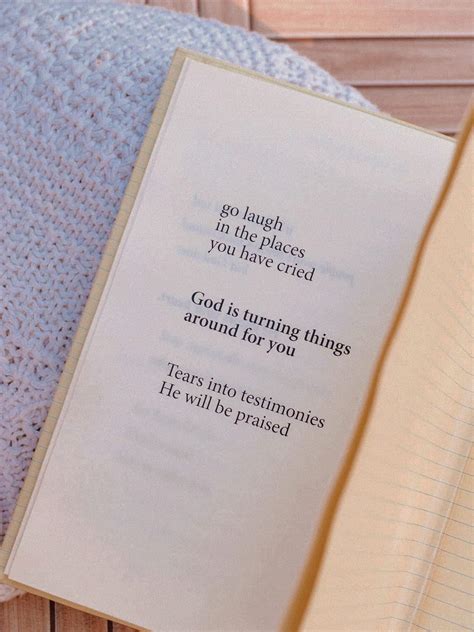 go laugh
in the places
you have cried
God is turning things
around for you
Tears into testimonies
He will be praised